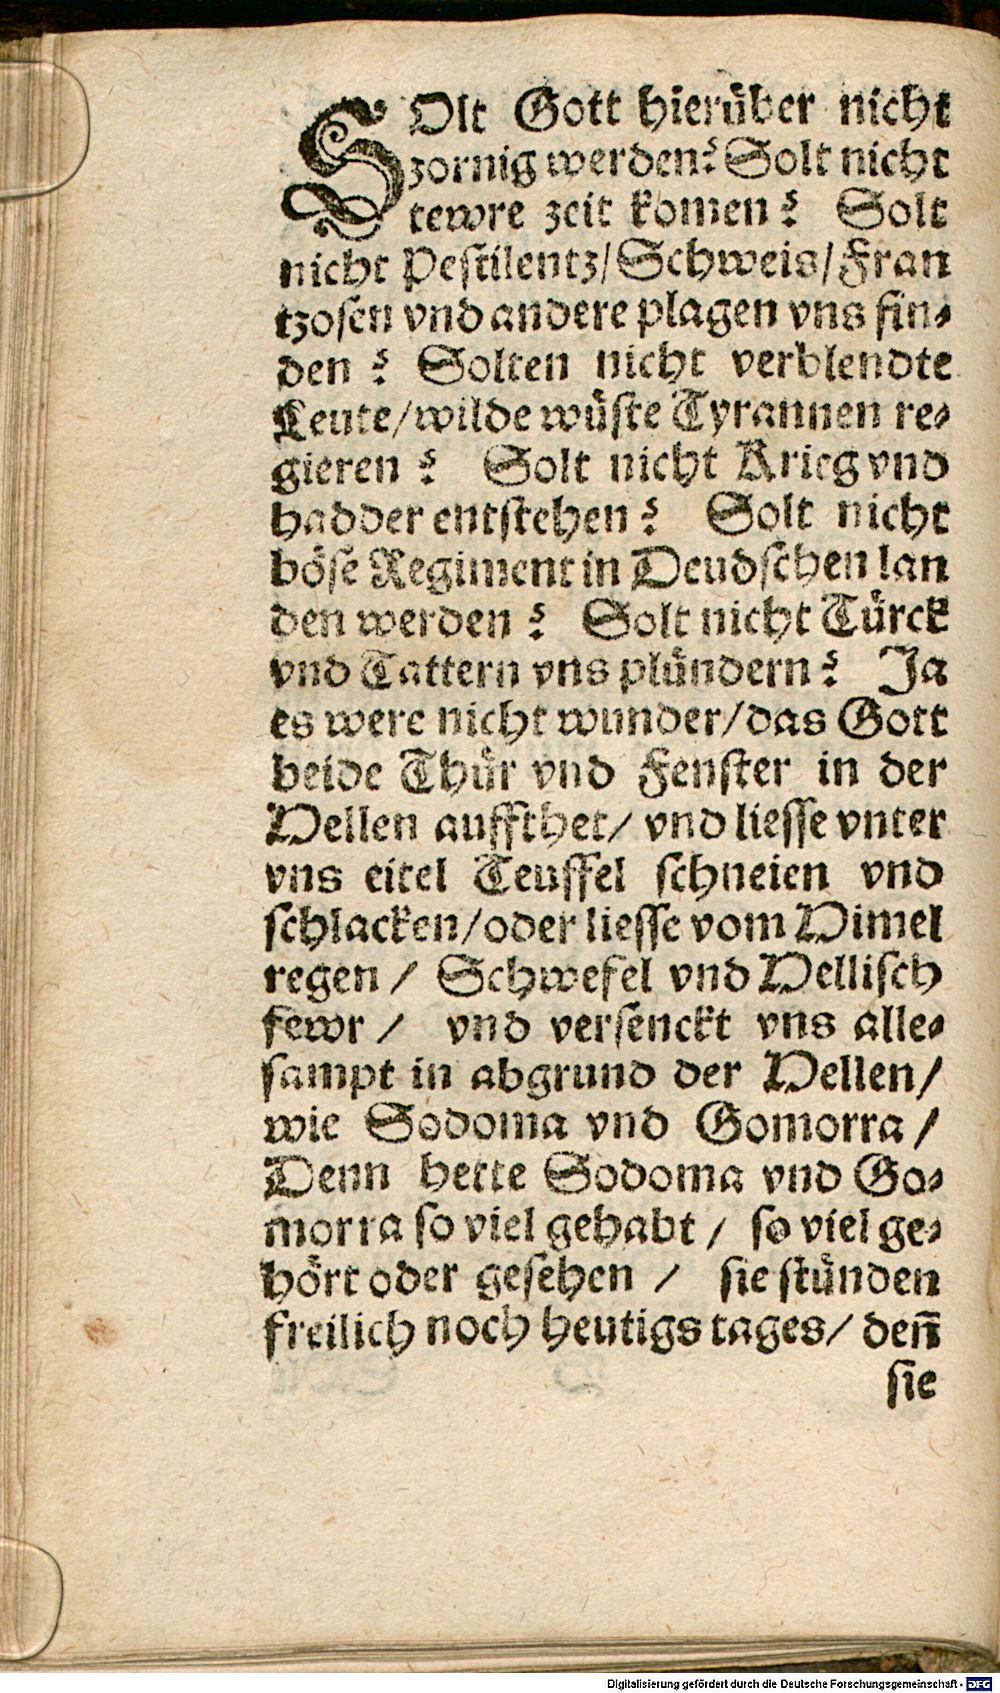 SOlt Gott hierüber nicht
zornig werden? Solt nicht
tewre zeit komen? Solt
nicht Pestilentz/Schweis/Fran
tzosen vnd andere plagen vns fin⸗
den? Solten nicht verblendte
Leute/wilde wüste Tyrannen re⸗
gieren? Solt nicht Krieg vnd
hadder entstehen? Solt nicht
böse Regiment in Deudschen lan
den werden? Solt nicht Türck
vnd Tattern vns plündern? Ja
es were nicht wunder/das Gott
beide Thür vnd Fenster in der
Hellen auffthet/ vnd liesse vnter
vns eitel Teuffel schneien vnd
schlacken/oder liesse vom Himel
regen / Schwefel vnd Hellisch
fewr / vnd versenckt vns alle⸗
sampt in abgrund der Hellen/
wie Sodoma vnd Gomorra /
Denn hette Sodoma vnd Go⸗
morra so viel gehabt / so viel ge⸗
hört oder gesehen / sie stünden
freilich noch heutigs tages/ den̄
sie
Digitalisierung gefördert durch die Deutsche Forschungsgemeinschaft - DFG